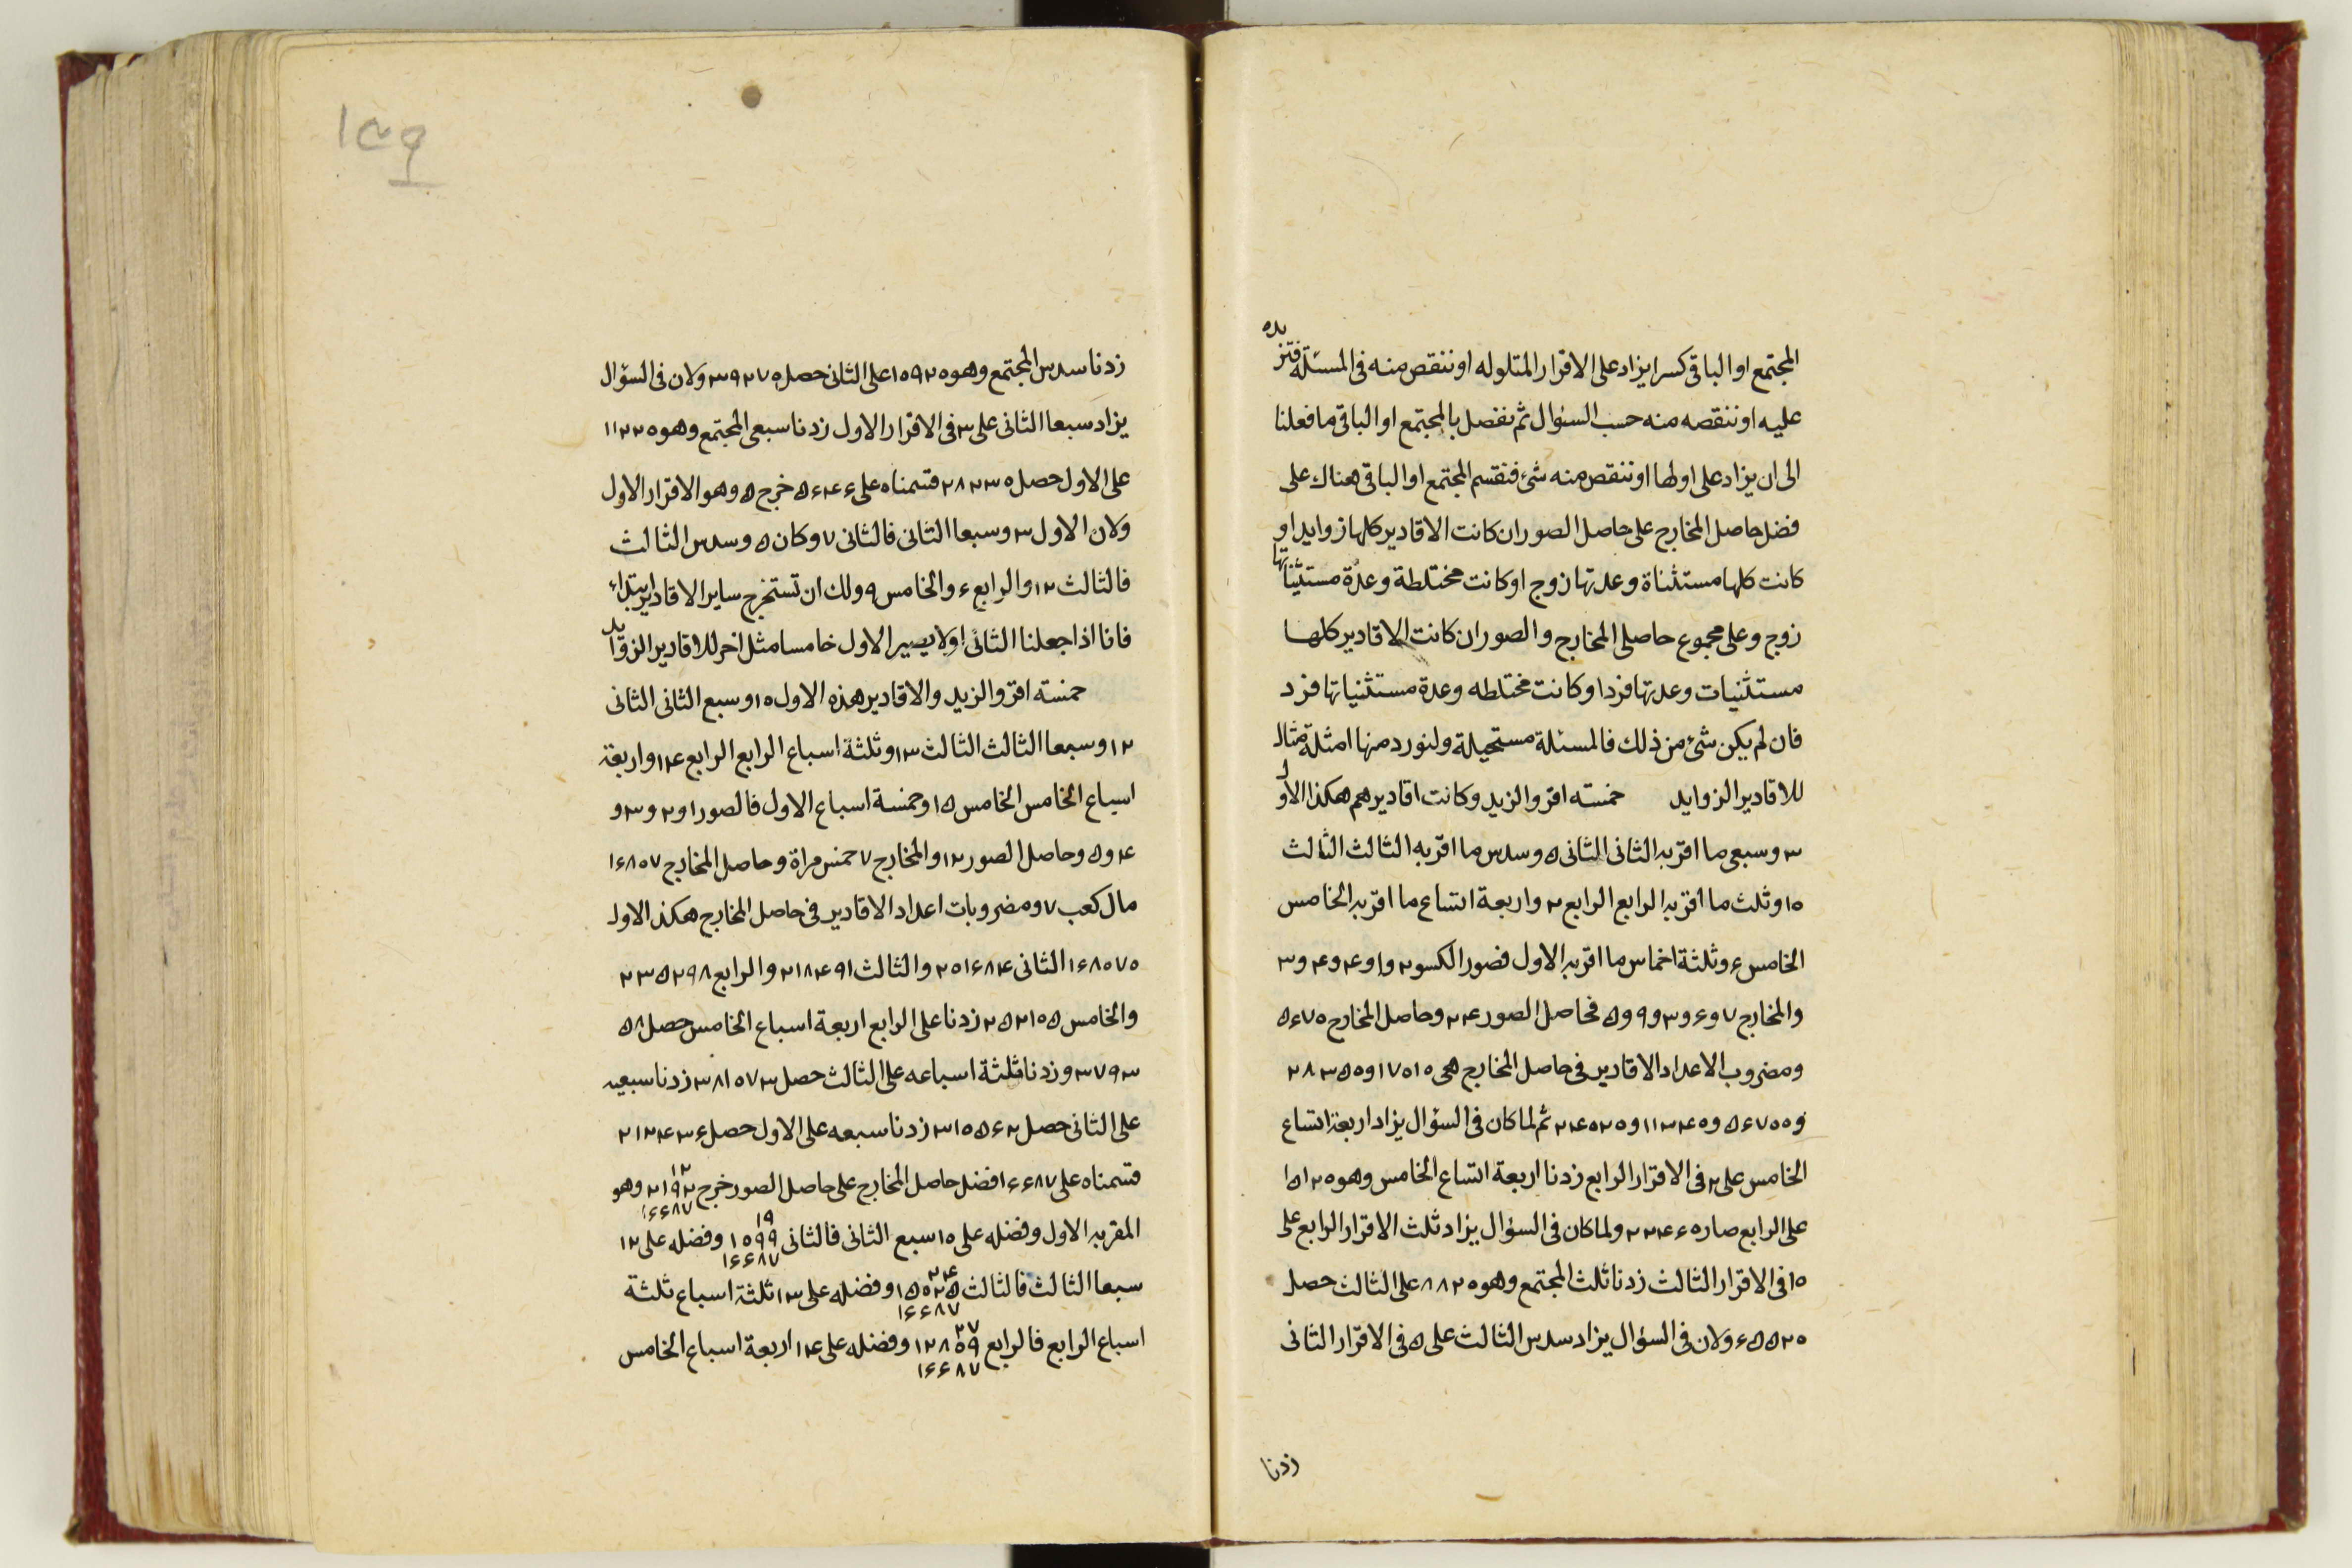 المجتمع او الباقى كسرا يزاد على الاقرار المتلوله او ننقص منه فى المسئلة فنزيده
عليه او ننقصه منه حسب السؤال ثم نفصل بالمجتمع او الباقى ما فعلنا
الى ان يزاد على اولها او ننقص منه شئ فنقسم المجتمع او الباقى هناك على
فضل حاصل المخارج على حاصل الصور ان كانت الاقادير كلها زوايد او
كانت كلها مستثناة وعدتها زوج او كانت مختلطة وعدة مستثنياتها
زوج وعلى مجموع حاصلى المخارج والصور ان كانت الاقادير كلها
مستثنيات وعدتها فردا وكانت مختلطه وعدة مستثنياتها فرد
فان لم يكن شئ من ذلك فالمسئلة مستحيلة ولنورد منها امثلة مثال
للاقادير الزوايد خمسته اقروا لزيد وكانت اقاديرهم هكذا الاول
٣ وسبعى ما اقربه الثانى الثانى ٥ وسدس ما اقربه الثالث الثالث
١٥ وثلث ما اقربه الرابع الرابع ٢ واربعة اتساع ما اقربه الخامس
الخامس ٤ وثلثة اخماس ما اقربه الاول فصور الكسو ٢ و١ و٤ و٤ و٣
والمخارج ٧ و٦ و٣ و٩ و٥ فحاصل الصور ٢٤ وحاصل المخارج ٥٦٧٠
ومضروب الاعداد الاقادير فى حاصل المخارج هى ١٧٠١٠ و٢٨٣٥٠
و٥٦٧٠٠ و١١٣٤٠ و٣٤٠٢٠ ثم لما كان فى السؤال يزاد اربعة اتساع
الخامس على ٢ فى الاقرار الرابع زدنا اربعة اتساع الخامس وهو ١٥١٢٠
على الرابع صار ٢٦٤٦٠ ولما كان فى السؤال يزاد ثلث الاقرار الرابع على
١٠ فى الاقرار الثالث زدنا ثلث المجتمع وهو ٨٨٢٠ على الثالث حصل
٦٥٥٢٠ ولان فى السؤال يزاد سدس الثالث على ٥ فى الاقرار الثانى
زدنا
١٣٩
زدنا سدس المجتمع وهو ١٠٩٢٠ على الثانى حصل ٣٩٢٧٠ ولان فى السؤال
يزاد سبعا الثانى على ٣ فى الاقرار الاول زدنا سبعى المجتمع وهو ١١٢٢٠
على الاول حصل ٢٨٢٣٠ قسمناه على ٥٦٤٦ خرج ٥ وهو الاقرار الاول
ولان الاول ٣ وسبعا الثانى فالثانى ٧ وكان ٥ وسدس الثالث
فالثالث ١٢ والرابع ٦ والخامس ٩ ولك ان تستخرج ساير الاقادير ابتداء
فانا اذا جعلنا الثانى اولا يصير الاول خامسا مثل اخر للاقادير الزوايد
خمسته اقروا لزيد والاقادير هذه الاول ١٠ وسبع الثانى الثانى
١٢ وسبعا الثالث الثالث ١٣ وثلثة اسباع الرابع الرابع ١٤ واربعة
اسباع الخامس الخامس ١٥ وخمسة اسباع الاول فالصور ١ و٢ و٣ و
٤ و٥ وحاصل الصور ١٢ والمخارج ٧ خمس مراة وحاصل المخارج ١٦٨٠٧
مال كعب ٧ ومضروبات اعداد الاقادير فى حاصل المخارج هكذا الاول
١٦٨٠٧٠ الثانى ٢٠١٦٨٤ والثالث ٢١٨٤٩١ والرابع ٢٣٥٢٩٨
والخامس ٢٥٢١٠٥ زدنا على الرابع اربعة اسباع الخامس حصل ٥٨
٣٧٩٣ وزدنا ثلثة اسباعه على الثالث حصل ٣٨١٠٧٣ زدنا سبعيه
على الثانى حصل ٣١٠٥٦٢ زدنا سبعه على الاول حصل ٢١٢٤٣٦
قسمناه على ١٦٦٨٧ فضل حاصل المخارج على حاصل الصور خرج ١٢ ٢١٩٢ ١٦٦٨٧ وهو
المقربه الاول وفضله على ١٠ سبع الثانى فالثانى ١٩ ١٠٩٩ ١٦٦٨٧ وفضله على ١٢
سبعا الثالث فالثالث ٢٤ ١٥٠٢٥ ١٦٦٨٧ وفضله على ١٣ ثلثة اسباع ثلثة
اسباع الرابع فالرابع ٢٧ ١٢٨٥٩ ١٦٦٨٧ وفضله على ١٤ اربعة اسباع الخامس